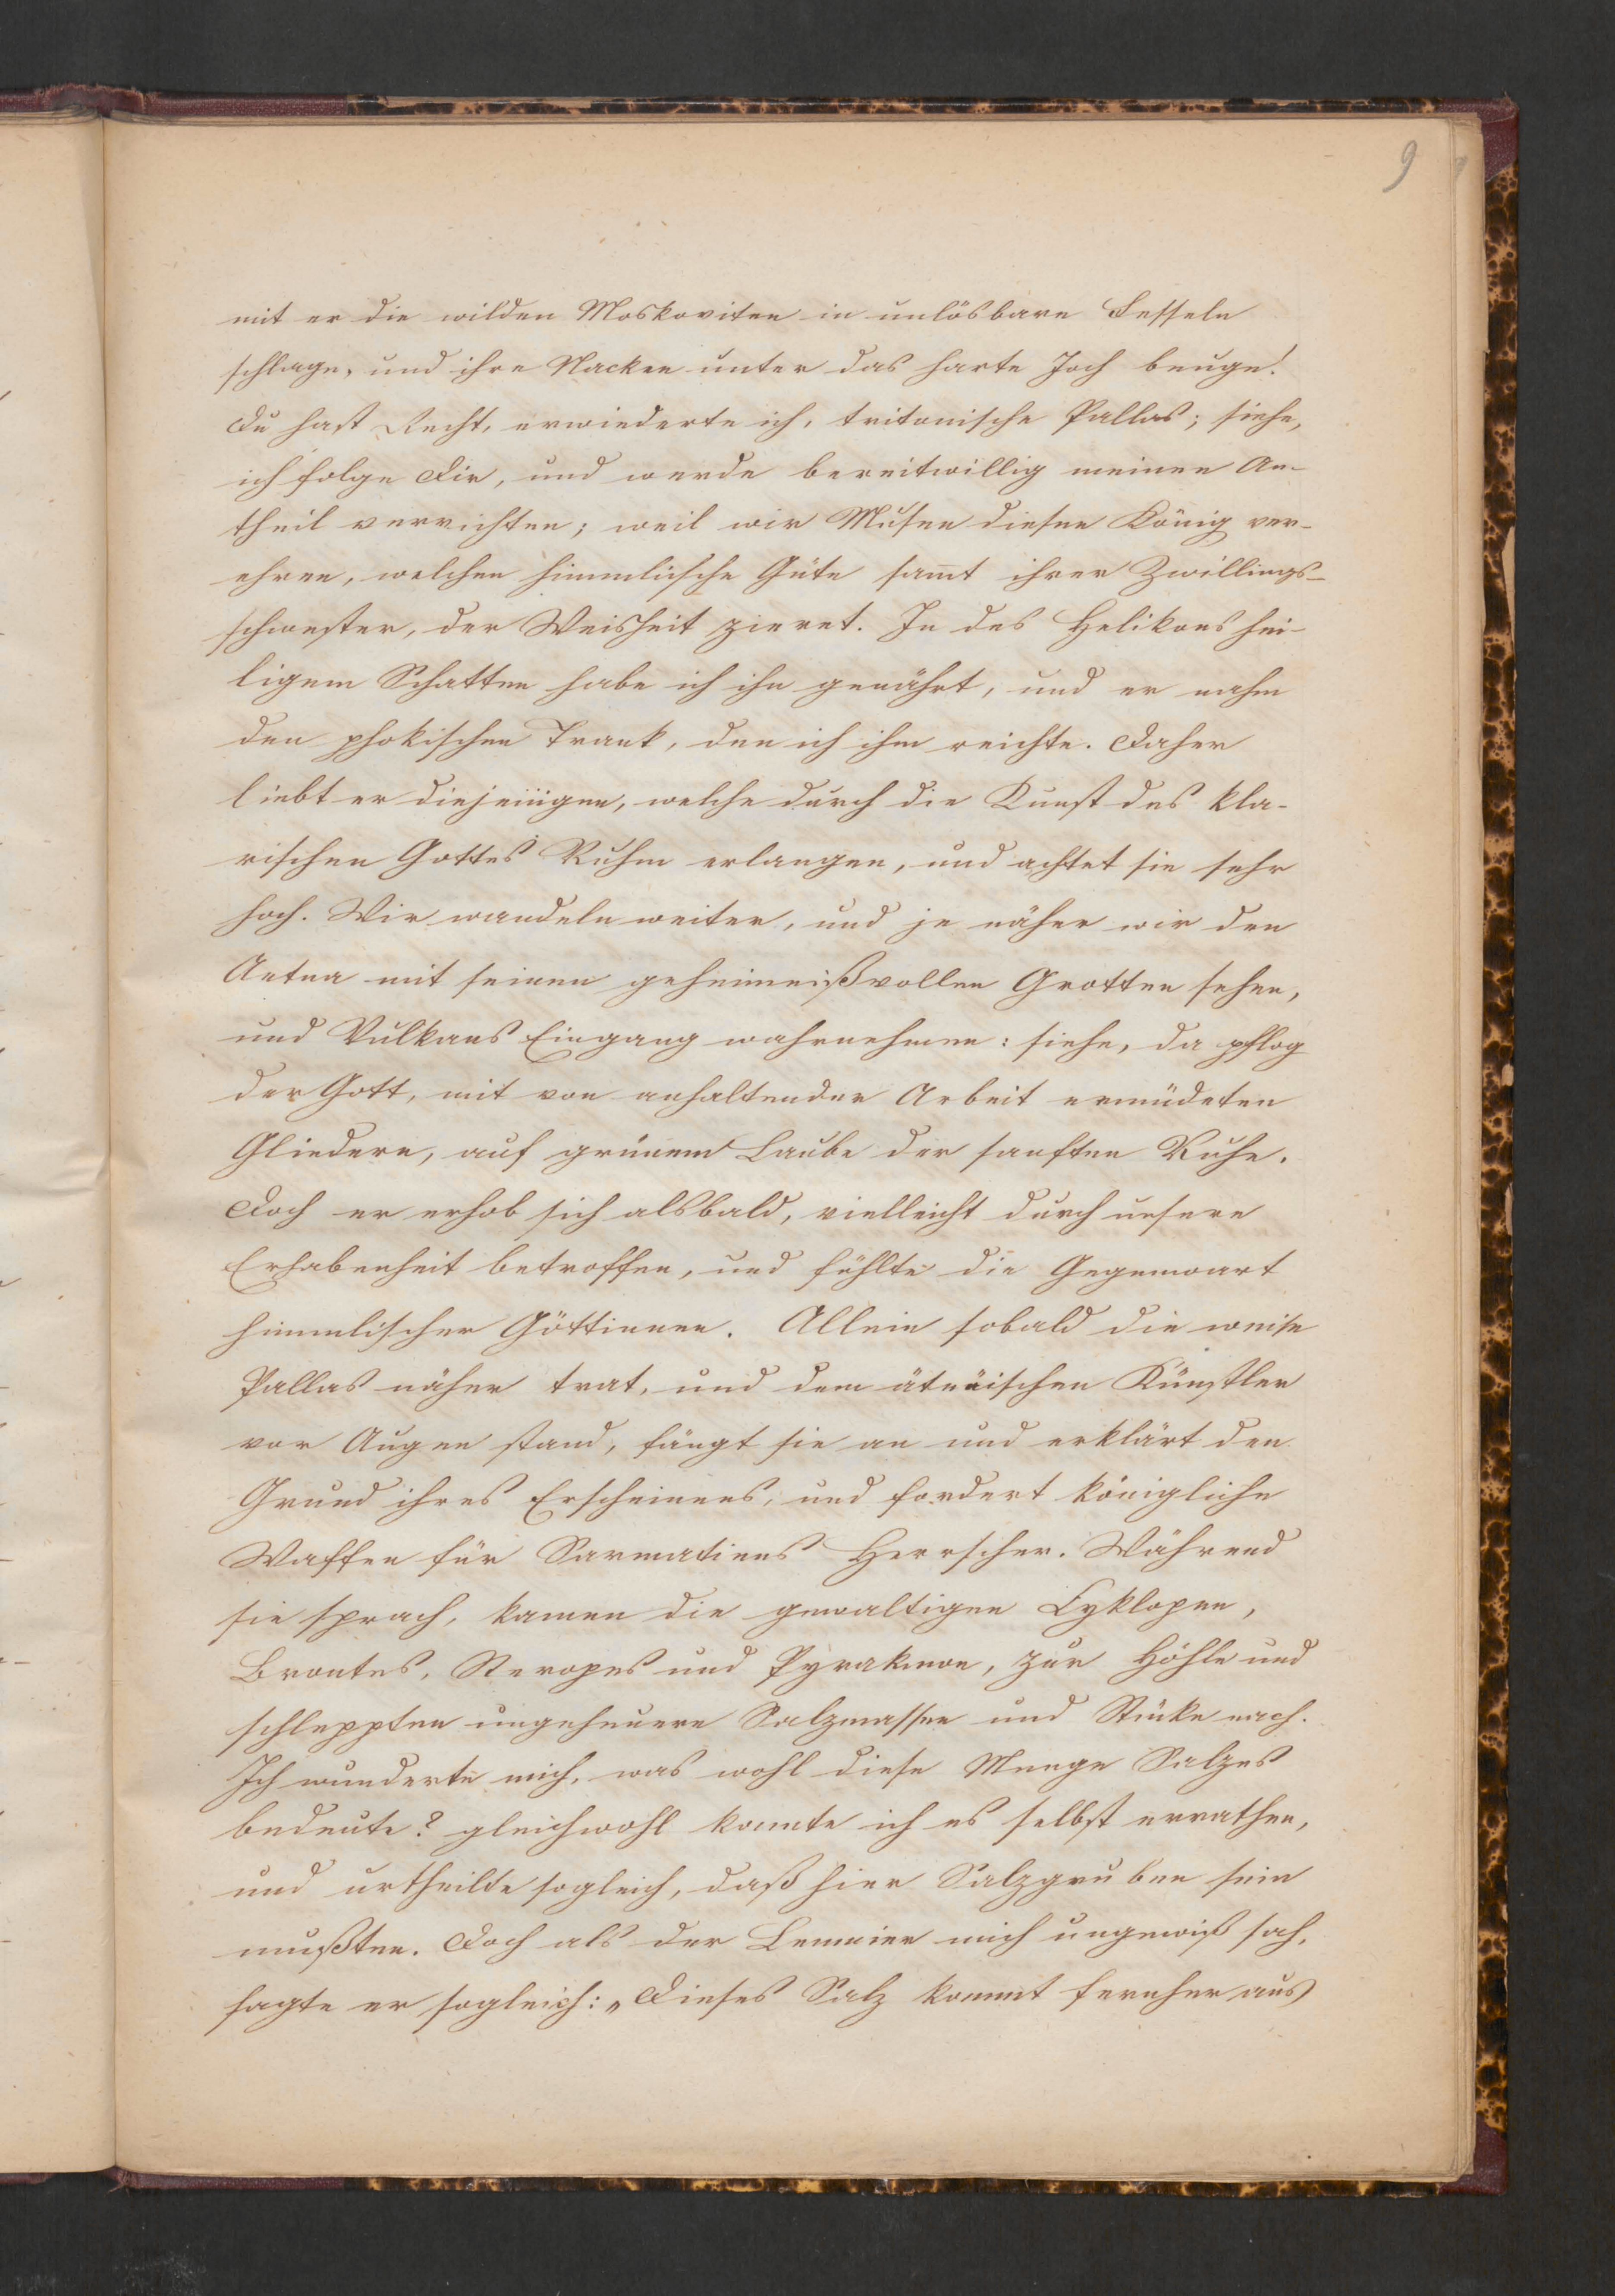 9
mit er die wilden Moskoviten in unlösbare Fesseln
schlage, und ihre Nacken unter das harte Joch beuge!
Du hast Recht, erwiederte ich, tritonische Pallas; siehe,
ich folge Dir, und werde bereitwillig meinen An-
theil verrichten; weil wir Musen diesen König ver-
ehren, welchen himmlische Güte sam̅t ihrer Zwillings-
schwester, der Weisheit zieret. In des Helikons hei-
ligem Schatten habe ich ihn genährt, und er nahm
den phokischen Trank, den ich ihm reichte. Daher
liebt er diejenigen, welche durch die Kunst des kla-
rischen Gottes Ruhm erlangen, und achtet sie sehr
hoch. Wir wandeln weiter, und je näher wir den
Aetna mit seinen geheimnißvollen Grotten sehen,
und Vulkans Eingang wahrnehmen: siehe, da pflog
der Gott, mit von anhaltender Arbeit ermüdeten
Gliedern, auf grünem Laube der sanften Ruhe.
Doch er erhob sich alsbald, vielleicht durch unsere
Erhabenheit betroffen, und fühlte die Gegenwart
himmlischer Göttinnen. Allein sobald die weise
Pallas näher trat, und dem ätnäischen Künstler
vor Augen stand, fängt sie an und erklärt den
Grund ihres Erscheinens, und fordert königliche
Waffen für Sarmatiens Herrscher. Während
sie sprach, kamen die gewaltigen Cyklopen,
Brontes, Steropes und Pyrakmon, zur Höhle und
schleppten ungeheuere Salzmassen und Stücke nach.
Ich wunderte mich, was wohl diese Menge Salzes
bedeute? gleichwohl konnte ich es selbst errathen,
und urtheilte sogleich, daß hier Salzgruben sein
mußten. Doch als der Lemnier mich ungewiß sah,
sagte er sogleich: „Dieses Salz kommt fernher aus